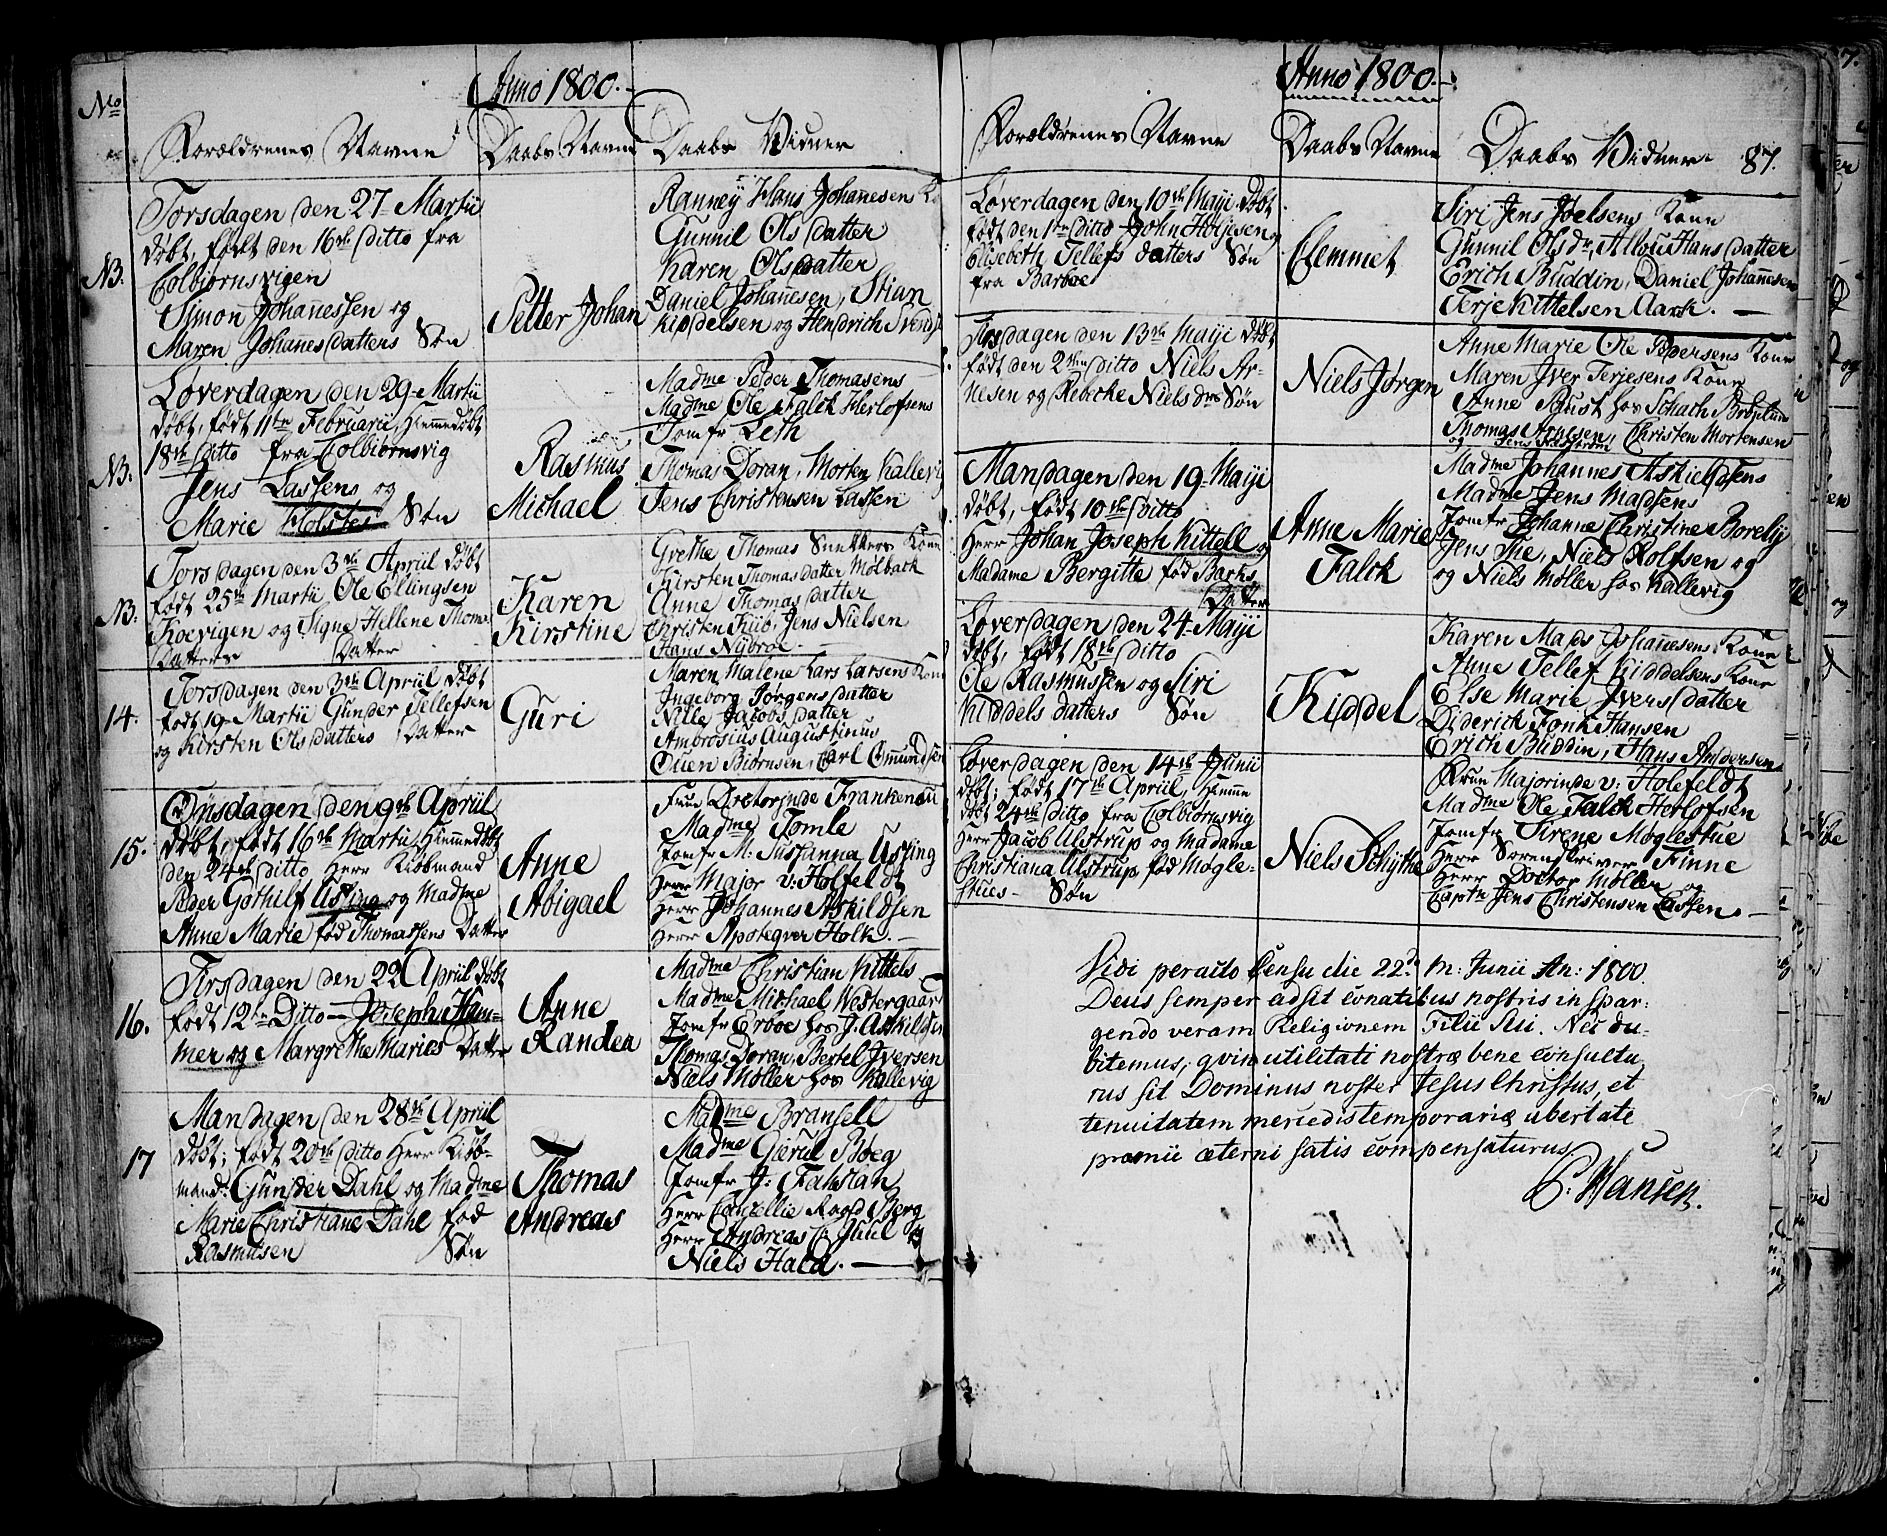 No
Anno 1800.
Forældrenes Navne
Daabs Navne
Daabs Vidner
NB.
Torsdagen den 27 Martii
døbt, født den 16de ditto fra
Colbiørnsvigen
Simon Johannessen og
Maren Johannesdatters Søn
Petter Johan
Ranney Hans Johannesens
Gunnil Olsdatter
Karen Olsdatter
Daniel Johannesen, Stian
Kiddelsen og Hendrich
NB.
Løverdagen den 29 Martii
døbt, født 11te Februarii, Hiemmedøbt
18de ditto fra Colbiørnsvig
Jens Lassens og
Marie Holsters Søn
Rasmus
Michael
Madme Peder Thomasens
Madme Ole Falck Herlofsens
Jomfr Leth
Thomas Doran, Morten Kallevig
Jens Christensen Lassen
NB.
Torsdagen den 3de Apriil døbt
født 25de Martii Ole Ellingsen
Koevigen og Signe Hellene Thomes
Datters Datter
Karen
Kirstine
Grethe Thomas Kone
Kirsten Thomasdatter Molback
Anne Thomasdatter
Christen Kiib, Jens Nielsen
Hans Nybroe.
14.
Torsdagen den 3de Apriil døbt
født 19 Martii Gunder Tellefsen
og Kirsten Olsdatters Datter
Guri
Maren Malene Lars Larsens Kone
Ingeborg Jørgensdatter
Nille Jacobsdatter
Ambrosius Augustinus
Ouen Biørnsen, Carl Omundsen
15.
Onsdagen den 9de Apriil
Døbt, født 16de Martii, Hiemmedøbt
den 24de ditto, Herr Kiøbmand
Peder Gothilf Ussing og Madme
Anne Marie fød Thomassens Datter
Anne
Abigael
Frue Frankenau
Madme Tomle
Jomfr M: Sussanna Ussing
Herr Major v: Holfeldt
Herr Johannes Askildsen
Herr Apoteqver Holk.
16.
Tirsdagen den 22 Apriil døbt
født 12te Ditto Joseph Ham-
mer og Margrethe Maries Datter
Anne
Randea
Madme Christian Kittels
Madme Michael Westergaard
Jomfr Erboe hos J. Askildsen
Thomas Doran, Bertel Iversen
Niels Møller hos Kallevig
17
Mandagen den 28de Apriil
døbt; født 20de ditto Herr Kiøb-
mand: Gunder Dahl og Madme
Marie Christiane Dahl fød
Rasmusen Søn
Thomas
Andreas
Madme Bransell
Madme Gierul Bøeg
Jomfr J: Falsiah
Herr Cancellie Raad Berg
Herr Andreas C. Juul og
Niels Hald.
Anno 1800.
Forældrenes Navne
Daabs Navne
Daabs Vidner
87.
Løverdagen den 10de Maji døbt
født den 1te ditto John Høljesen og
Elisebeth Tellefsdatters Søn
fra Barboe
Clemmet
Siri Jens Joelsens Kone
Gunnil Olsdr, Allou Hansdatter
Erich Buddin, Daniel Johannesen
Terje Kittelsen Aark.
Tirsdagen den 13de Maji døbt
født den 2den ditto Niels Ar-
nesen og Rebecke Nielsdrs Søn
Niels Jørgen
Anne Marie Ole Pedersens Kone
Maren Iver Terjesens Kone
Anne Sust hos Schach
Thomas Arnesen, Christen Mortensen
og Jens
Mandagen den 19 Maji
døbt, født 10de ditto
Herr Johan Joseph Kittell og
Madame Bergitte fød Barks
Datter
Anne Marie
Falck
Madme Johannes Askieldsens
Madme Jens Madsens
Jomfr Johanne Christine Borely
Jens The, Niels Rolfsen og
og Niels Møller hos Kallevig
Løverdagen den 24 Maji
døbt, født 18de ditto
Ole Rasmussen og Siri
Kiddelsdatters Søn
Kiddel
Karen Mads Johannesens Kone
Anne Tellef Kiddelsens Kone
Else Marie Iversdatter
Diderick Fonk Hansen
Erich Buddin, Hans Andersen
Løverdagen den 14de Junii
døbt; født 17de Apriil, Hiemme
døbt 24de ditto fra Colbiørnsvig
Herr Jacob Ulstrup og Madame
Christiana Ulstrup fød Møgle-
stues Søn
Niels Schythe
Frue Majorinde v: Holefeldt
Madme Ole Falck Herlofsen
Jomfr Sirene Møglestue
Herr Sorenskriver Finne
Herr Doctor Møller og
Captn Jens Christensen Lassen.
Vidi peracto Censu die 22d. M: Junii An: 1800.
Deus semper adsit conatibus nostris in spar:
gendo veram Religionem Filii Sui. Nec du-
bitemus, qvin utilitati nostræ bene consultu
rus sit Dominus noster Jesus Christus, et
tenuitatem mercedis temporariæ ubertate
præmii æterni satis compensaturus,
P. Hansen.